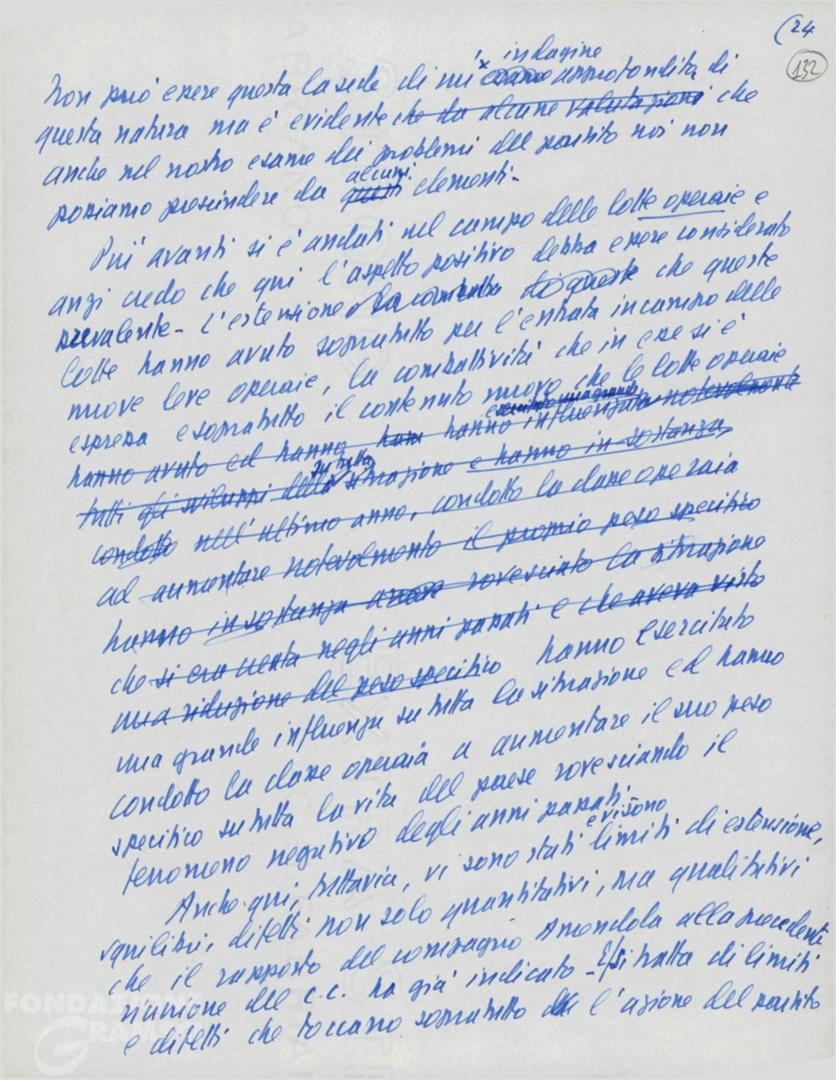 (24
132
indagine
Non può essere questa la sede di un' esame approfondita di
questa natura ma è evidente che da alcune valutazioni che
anche nel nostro esame dei problemi del partito noi non
alcuni
possiamo prescindere da questi elementi.
Più avanti si è andati nel campo delle lotte operaie e
anzi credo che qui l'aspetto positivo debba essere considerato
prevalente - L'estensione la combatt di queste che queste
lotte hanno avuto sopratutto per l'entrata in campo delle
nuove leve operaie, la combattività che in esse si è
espressa e sopratutto il contenuto nuovo che le lotte operaie
hanno avuto ed hanno hanno influenzato notevolmente
su tutta
tutti gli sviluppi della situazione e hanno in sostanza,
condotto nell'ultimo anno, condotto la classe operaia
ad aumentare notevolmente il proprio peso specifico
hanno in sostanza rovesciato la situazione
che si era creata negli anni passati e che aveva visto
una riduzione del peso specifico hanno esercitato
una grande influenza su tutta la situazione ed hanno
condotto la classe operaia a aumentare il suo peso
specifico su tutta la vita del paese rovesciando il
fenomeno negativo degli anni passati.
e vi sono
Anche qui, tuttavia, vi sono stati limiti di estensione,
squilibri, difetti non solo quantitativi, ma qualitativi
che il rapporto del compagno Amendola alla precedente
riunione del C.C. ha già indicato - Si tratta di limiti
e difetti che toccano sopratutto l'azione del partito
FONDAZIONE
GRAMSCI